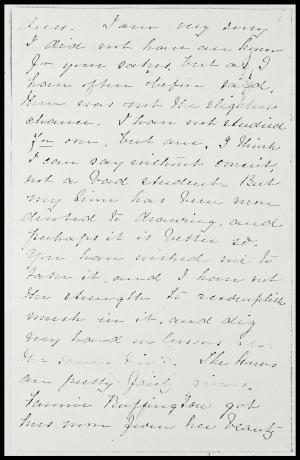 dies. I am very sorry
I did not have an honor
for your sakes, but as I
have often before said,
there was not the slightest
chance. I have not studied
for one, but am, I think
I can say without conceit,
not a bad student. But
my time has been more
devoted to drawing, and
perhaps it is better so.
You have wished me to
take it, and I have not
the strength to accomplish
much in it, and dig
very hard on lessons
the same time. The honors
are pretty fairly given.
Fannie Buffington got
hers more from her beauty